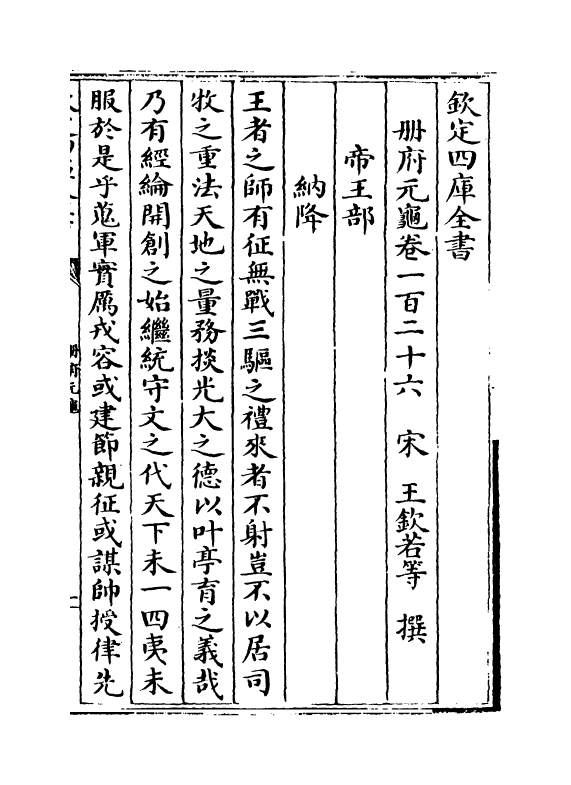 欽定四庫全書
冊府元龜卷一百二十六　宋　王欽若等　撰
帝王部
納降
王者之師有征無戰三驅之禮來者不射豈不以居司
牧之重法天地之量務掞光大之德以叶亭育之義哉
乃有經綸開創之始繼統守文之代天下未一四夷未
服於是乎蒐軍實厲戎容或建節親征或謀帥授律先
冊府元龜